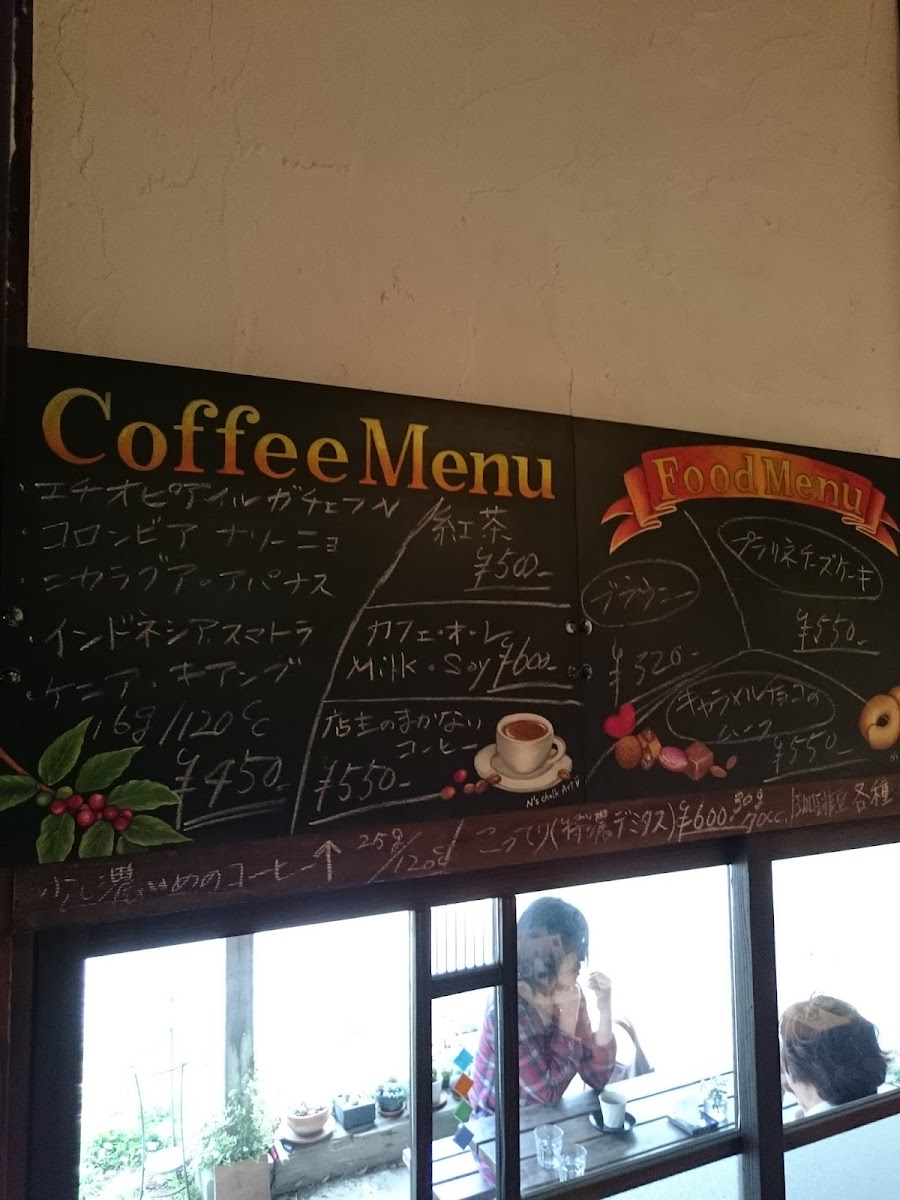 Coffee Menu
・エチオピアイルガチェフN
・コロンビア ナリーニョ
・ニカラグア・アパナス
・インドネシアスマトラ
・ケニア・キアング
16g/120cc
¥450-
紅茶
¥500-
カフェ・オ・レ
Milk・Soy ¥600-
店主のまかない
コーヒー
¥550-
N's chalk Art
Food Menu
ブラウニー
¥320-
プラリネチーズケーキ
¥550-
キャラメルチョコの
¥550-
少し濃いめのコーヒー↑ 25g/120cc
こってり(特濃デミタス)¥600 30g 70cc
珈琲豆 各種